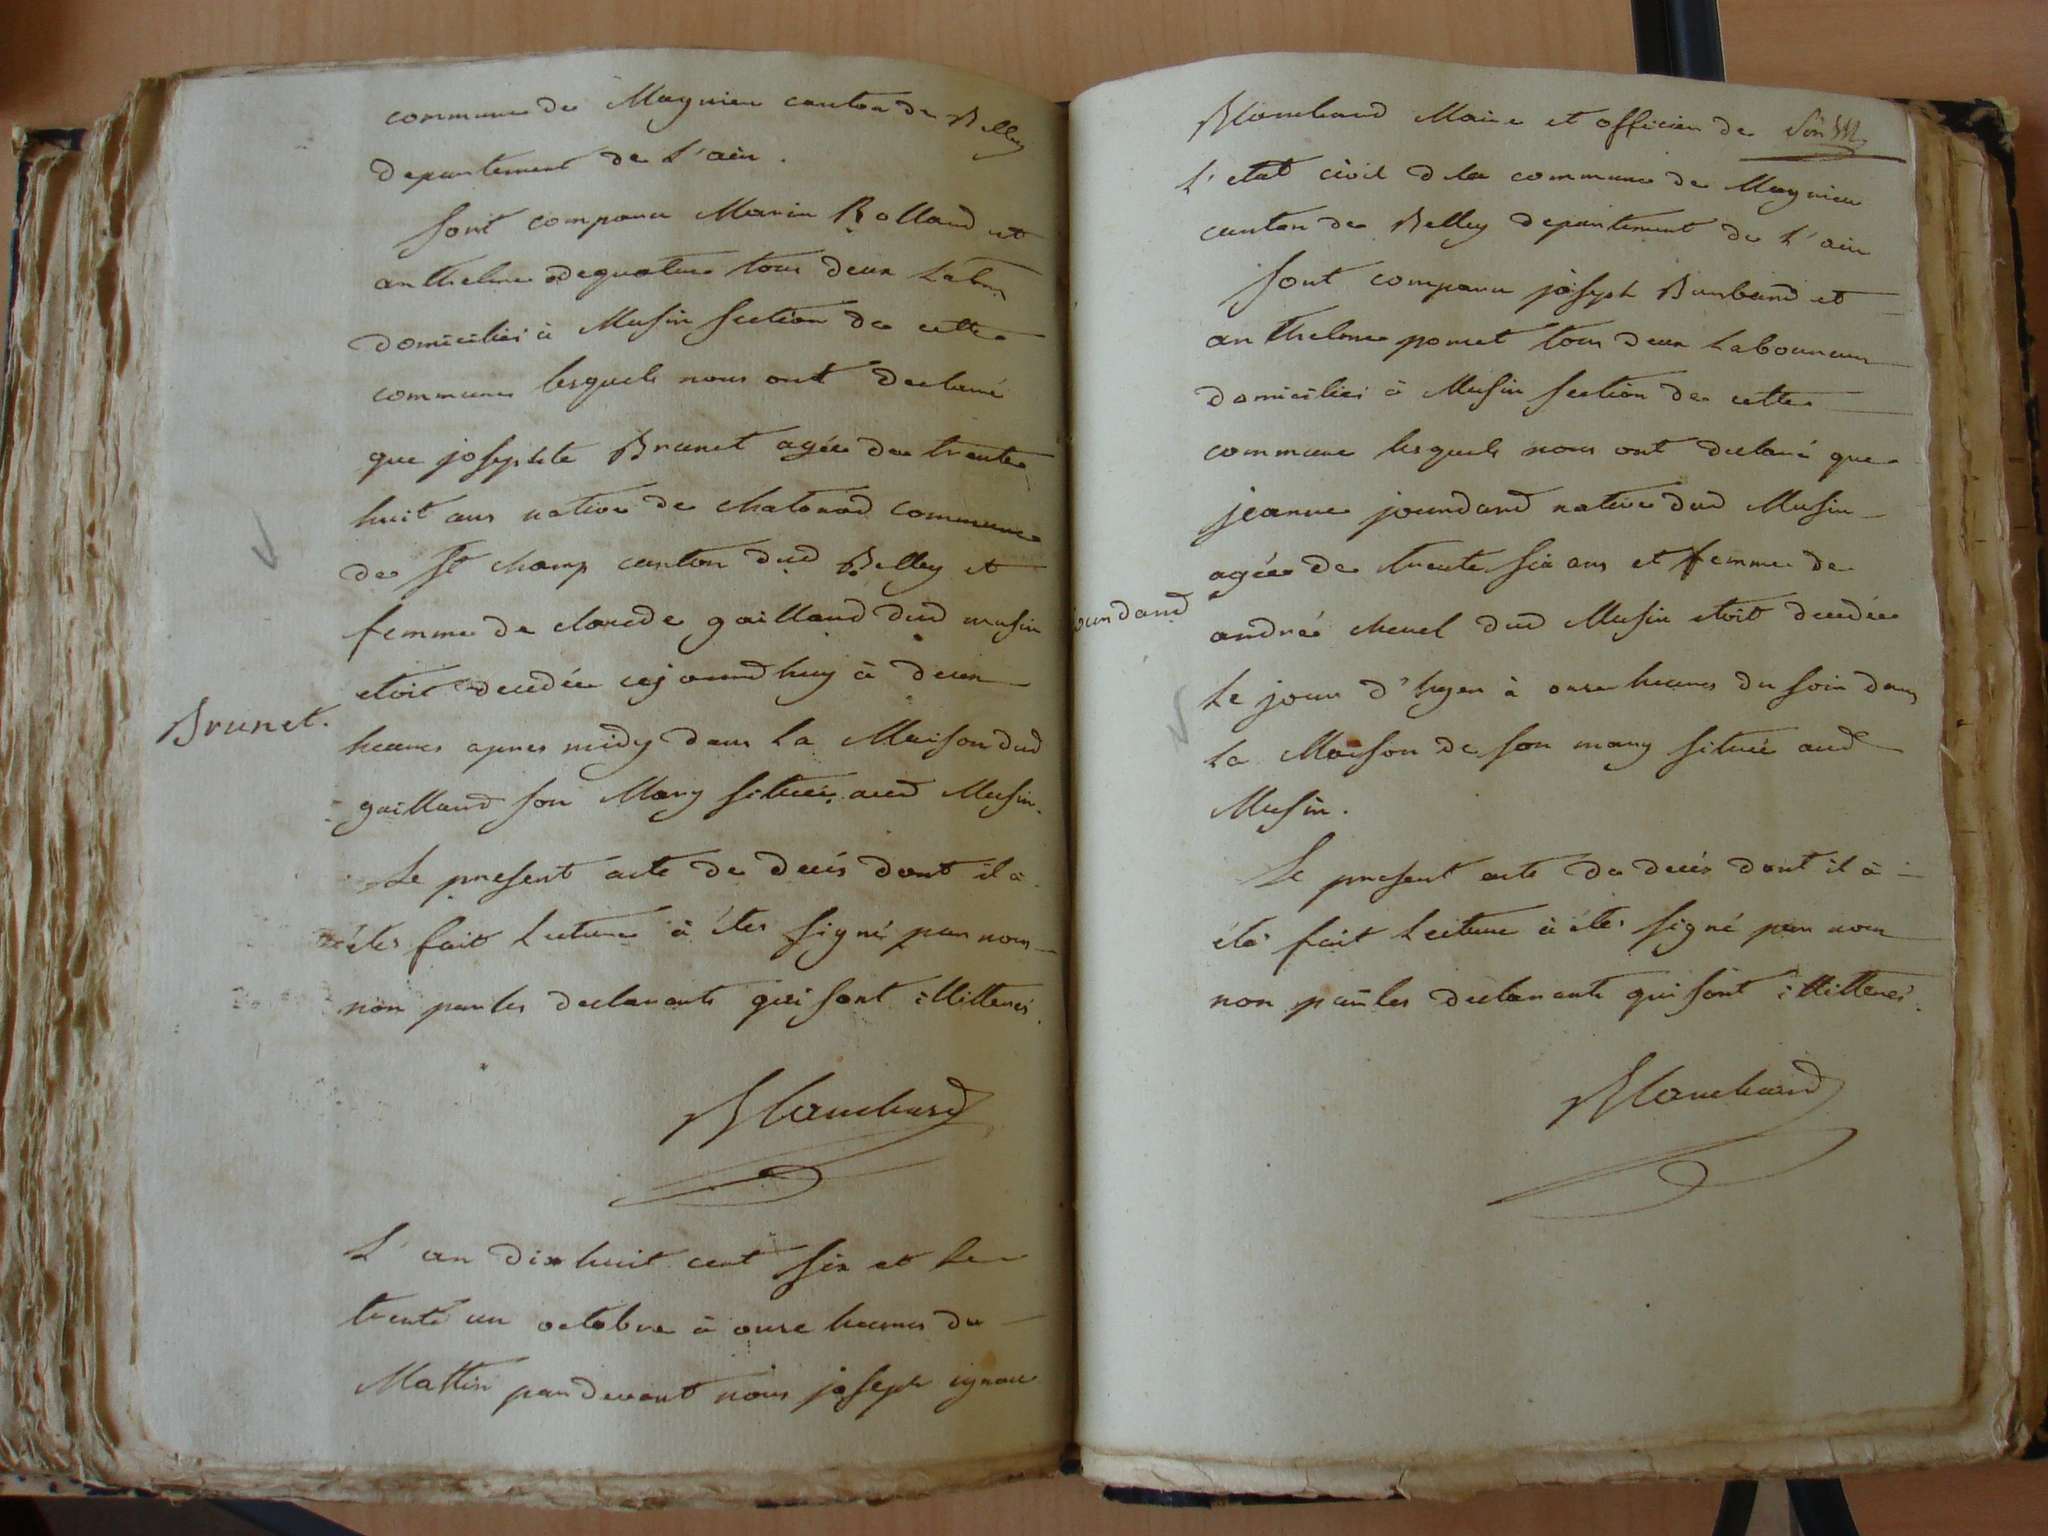 commune de Magnieu canton de Belley
departement de L'ain.
Sont comparu Marin Rolland et
anthelme dequatre tous deux Labrs
domiciliés à Musin section de cette
commune lesquels nous ont declaré
que josephte Brunet agée de trente
huit ans native de chatonod commune
de St champ canton dud Belley et
femme de claude gaillard dud musin
Brunet.
etoit decedée cejourdhuy à deux
heures apres midy dans La Maison dud
gaillard son Mary située aud Musin.
Le present acte de decès dont il à
étés fait Lecture à étés signé par nous
non par les declarants qui sont illitterés.
Blanchard
L'an dix huit cent six et le
trente un octobre à onze heures du
Mattin pardevant nous joseph ignace
Blanchard Maire et officier de
L'etat civil d la commune de Magnieu
canton de Belley departement de L'ain
Sont comparu joseph Burbard et
anthelme poncet tous deux Laboureurs
domiciliés à Musin section de cette
commune lesquels nous ont declaré que
jeanne jourdand native dud Musin
agée de trente six ans et femme de
ourdand
andré chevel dud Musin etoit decedée
Le jour d'hyer à onze heures du soir dans
La Maison de son mary située aud
Musin.
Le present acte de decès dont il à
étés fait Lecture à étés signé par nous
non par les declarants qui sont illitterés.
Blanchard